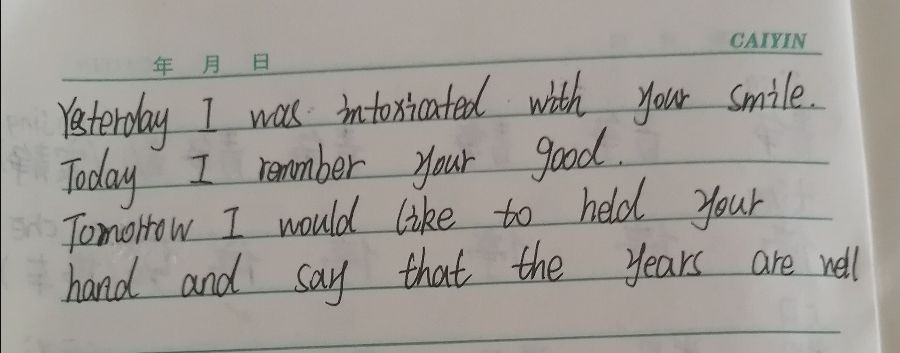 CAIYIN
年 月 日
Yesterday I was intoxicated with your smile.
Today I renmber your good.
Tomorrow I would like to held your
hand and say that the years are well